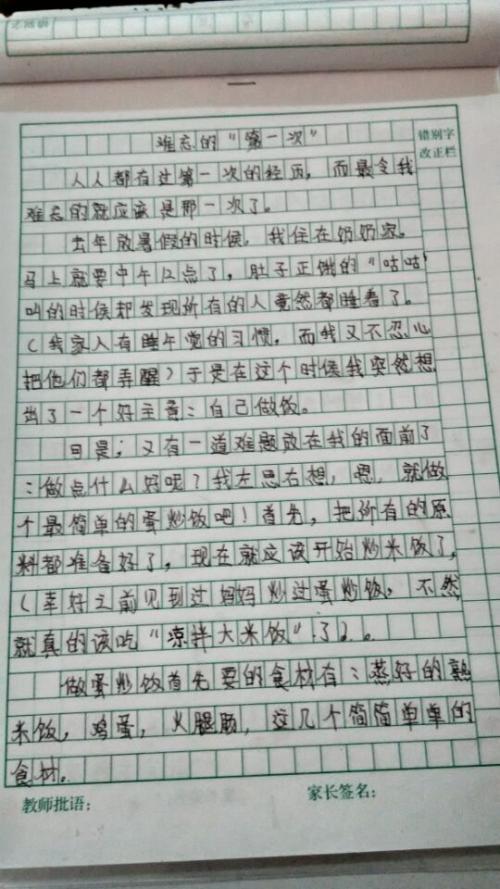 难忘的“第一次”
错别字
改正栏
人人都有过第一次的经历，而最令我
难忘的就应该是那一次了。
去年放暑假的时候，我住在奶奶家。
马上就要中午12点了，肚子正饿的“咕咕”
叫的时候却发现所有的人竟然都睡着了。
（我家人有睡午觉的习惯，而我又不忍心
把他们都弄醒）于是在这个时候我突然想
出了一个好主意：自己做饭。
可是，又有一道难题放在我的面前了
：做点什么好呢？我左思右想，嗯，就做
个最简单的蛋炒饭吧！首先，把所有的原
料都准备好了，现在就应该开始炒米饭了，
（幸好之前见到过妈妈炒过蛋炒饭，不然
就真的该吃“凉拌大米饭”了）。
做蛋炒饭首先要的食材有：蒸好的熟
米饭，鸡蛋，火腿肠，这几个简简单单的
食材。
教师批语：
家长签名：